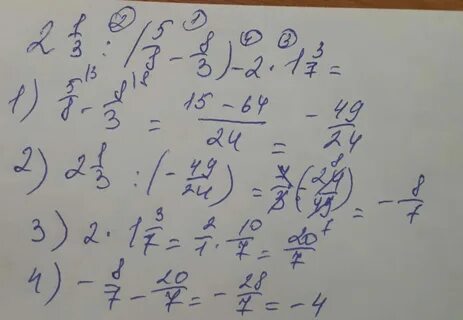 ② ① ④ ③
2 1/3 : (5/8 - 8/3) - 2 · 1 3/7 =
1) 5/8 - 8/3 = (15 - 64)/24 = - 49/24
2) 2 1/3 : (- 49/24) = 7/3 · (- 24/49) = - 8/7
3) 2 · 1 3/7 = 2/1 · 10/7 = 20/7
4) - 8/7 - 20/7 = - 28/7 = - 4